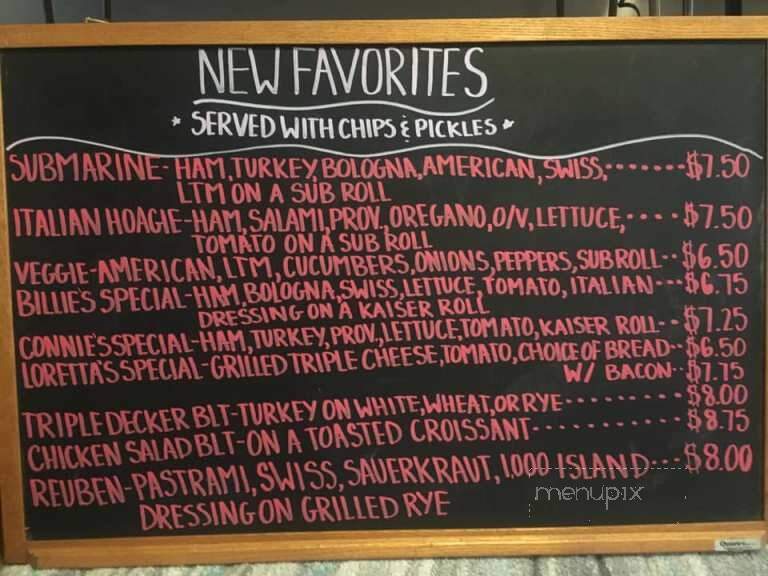 NEW FAVORITES
* SERVED WITH CHIPS & PICKLES *
SUBMARINE- HAM, TURKEY, BOLOGNA, AMERICAN, SWISS,······· $7.50
LTM ON A SUB ROLL
ITALIAN HOAGIE-HAM, SALAMI, PROV. OREGANO, O/V, LETTUCE,···· $7.50
TOMATO ON A SUB ROLL
VEGGIE-AMERICAN, LTM, CUCUMBERS, ONIONS, PEPPERS, SUB ROLL·· $6.50
BILLIE'S SPECIAL-HAM, BOLOGNA, SWISS, LETTUCE, TOMATO, ITALIAN··· $6.75
DRESSING ON A KAISER ROLL
CONNIE'S SPECIAL-HAM, TURKEY, PROV, LETTUCE, TOMATO, KAISER ROLL-·· $7.25
LORETTA'S SPECIAL-GRILLED TRIPLE CHEESE, TOMATO, CHOICE OF BREAD-- $6.50
W/ BACON·· $7.75
TRIPLE DECKER BLT-TURKEY ON WHITE, WHEAT, OR RYE---------- $8.00
CHICKEN SALAD BLT-ON A TOASTED CROISSANT------------ $8.75
REUBEN-PASTRAMI, SWISS, SAUERKRAUT, 1,000 ISLAND--- $8.00
DRESSING ON GRILLED RYE
menupix